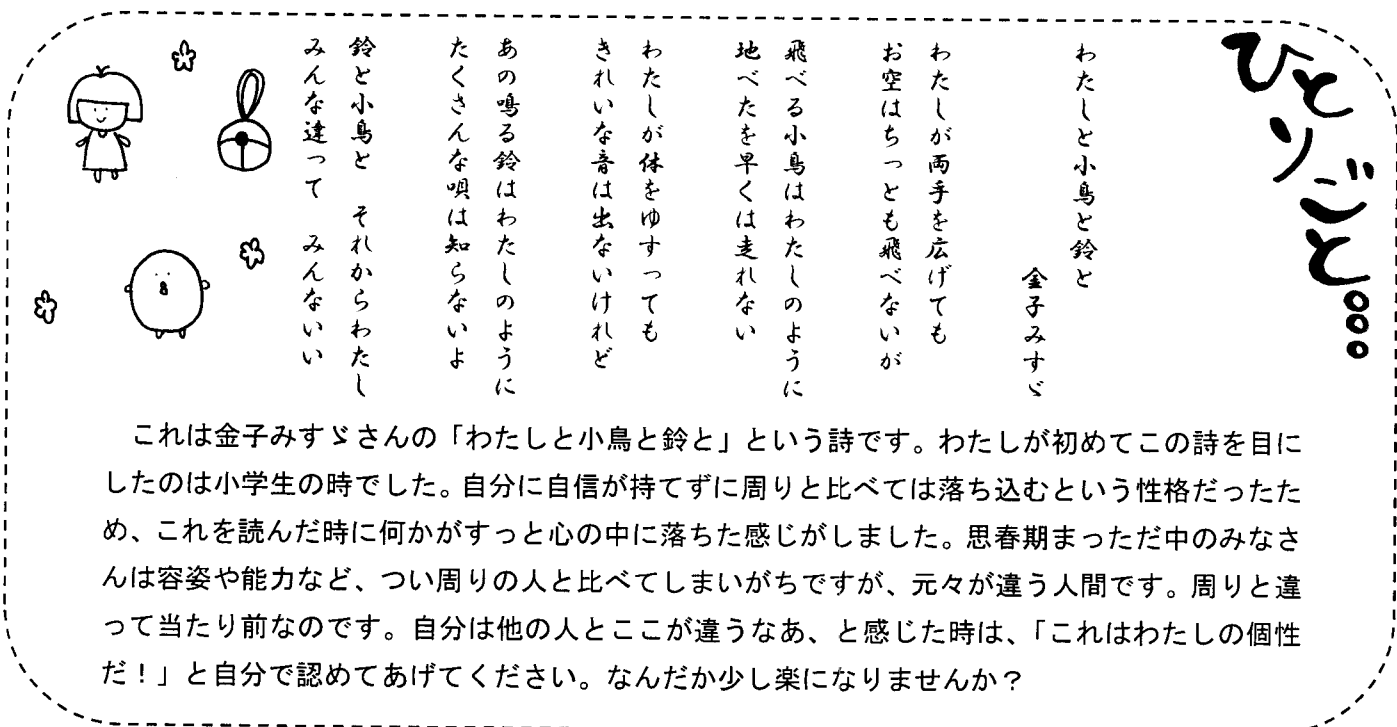 ひとりごと。。。
わたしと小鳥と鈴と
金子みすゞ
わたしが両手を広げても
お空はちっとも飛べないが
飛べる小鳥はわたしのように
地べたを早くは走れない
わたしが体をゆすっても
きれいな音は出ないけれど
あの鳴る鈴はわたしのように
たくさんな唄は知らないよ
鈴と小鳥と　それからわたし
みんな違って　みんないい
これは金子みすゞさんの「わたしと小鳥と鈴と」という詩です。わたしが初めてこの詩を目に
したのは小学生の時でした。自分に自信が持てずに周りと比べては落ち込むという性格だったた
め、これを読んだ時に何かがすっと心の中に落ちた感じがしました。思春期まっただ中のみなさ
んは容姿や能力など、つい周りの人と比べてしまいがちですが、元々が違う人間です。周りと違
って当たり前なのです。自分は他の人とここが違うなあ、と感じた時は、「これはわたしの個性
だ！」と自分で認めてあげてください。なんだか少し楽になりませんか？